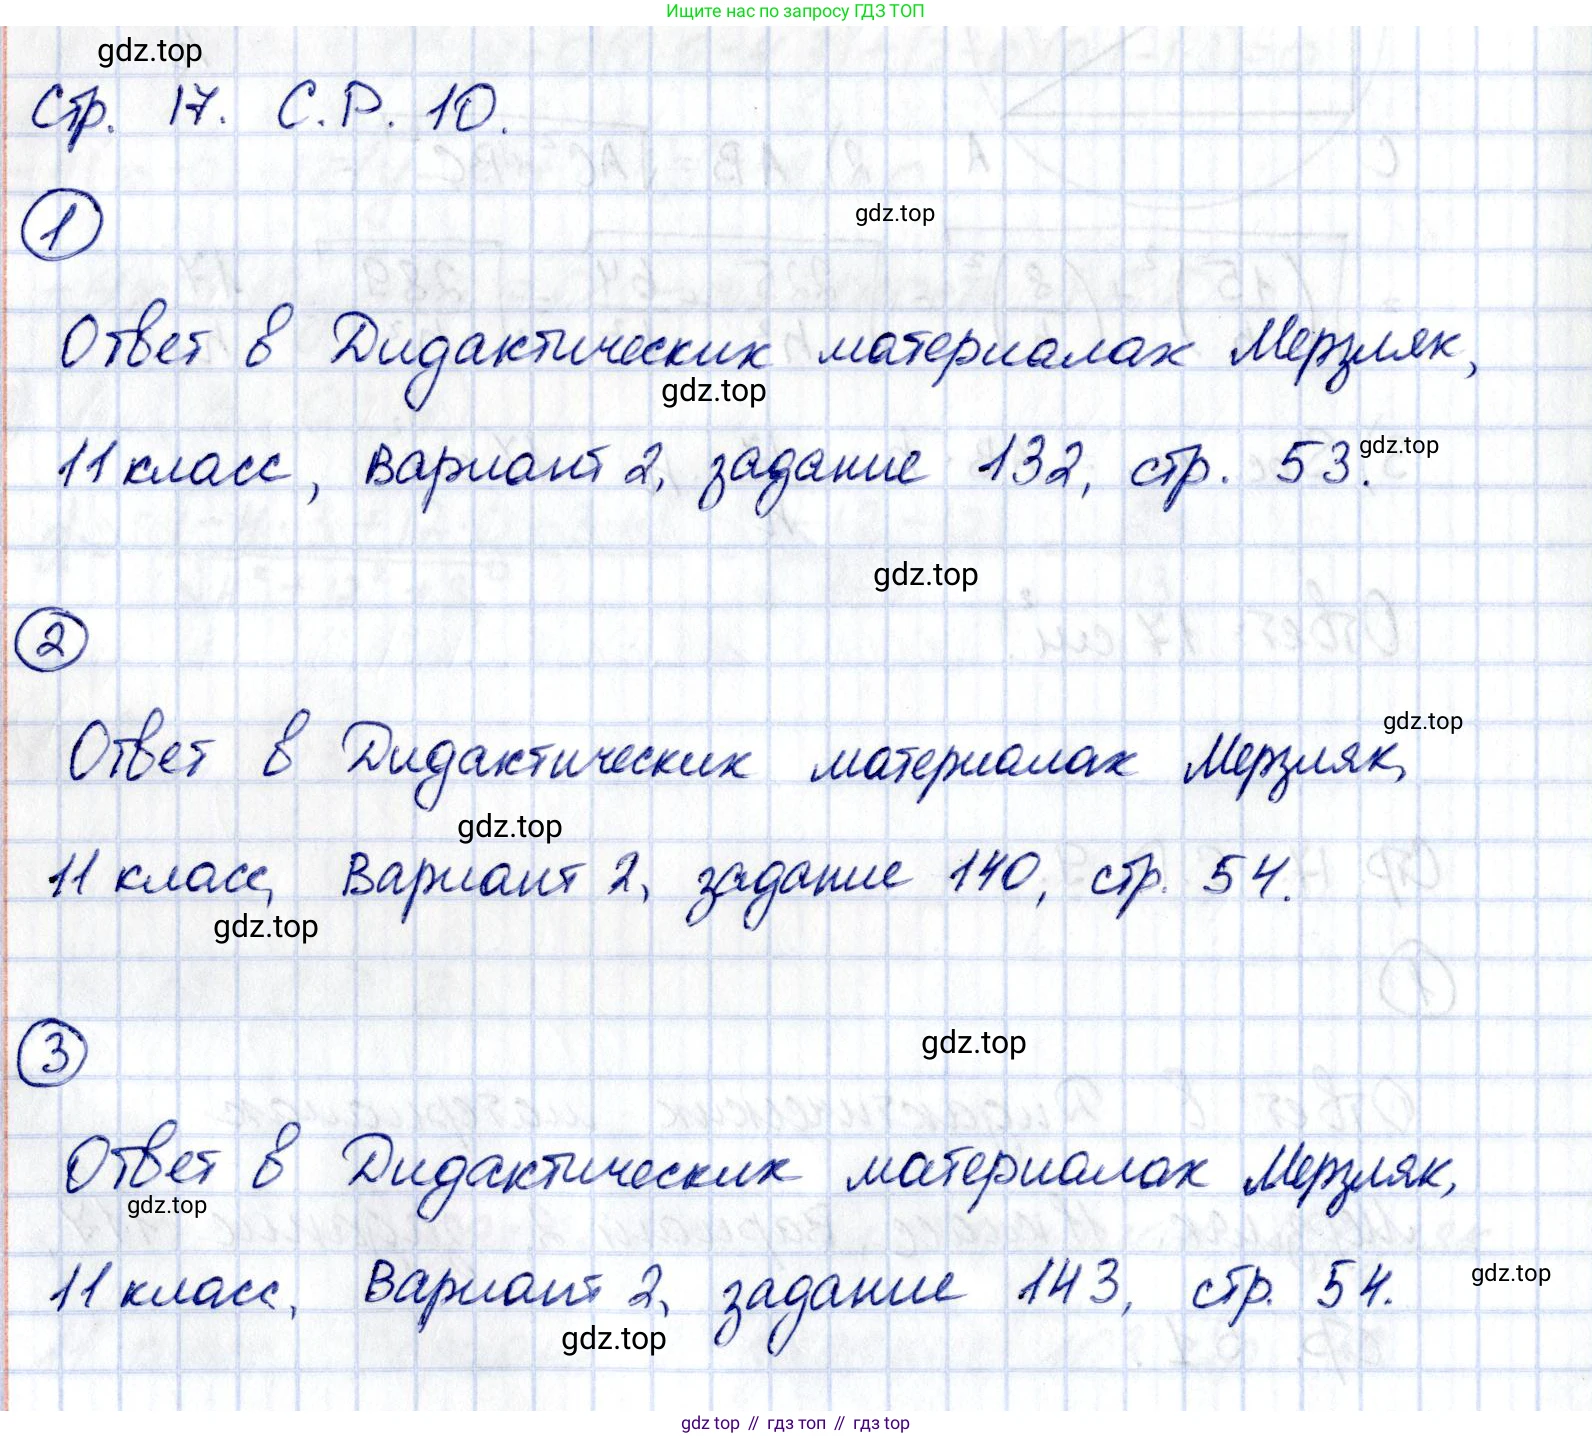 Ищите нас по запросу ГДЗ ТОП
gdz.top
Стр. 17. С.Р. 10.
1
gdz.top
Ответ в Дидактических материалах Мерзляк,
gdz.top
11 класс, Вариант 2, задание 132, стр. 53.
gdz.top
gdz.top
2
gdz.top
Ответ в Дидактических материалах Мерзляк,
gdz.top
11 класс, Вариант 2, задание 140, стр. 54.
gdz.top
3
gdz.top
Ответ в Дидактических материалах Мерзляк,
gdz.top
11 класс, Вариант 2, задание 143, стр. 54.
gdz.top
gdz.top
gdz top // гдз топ // гдз top